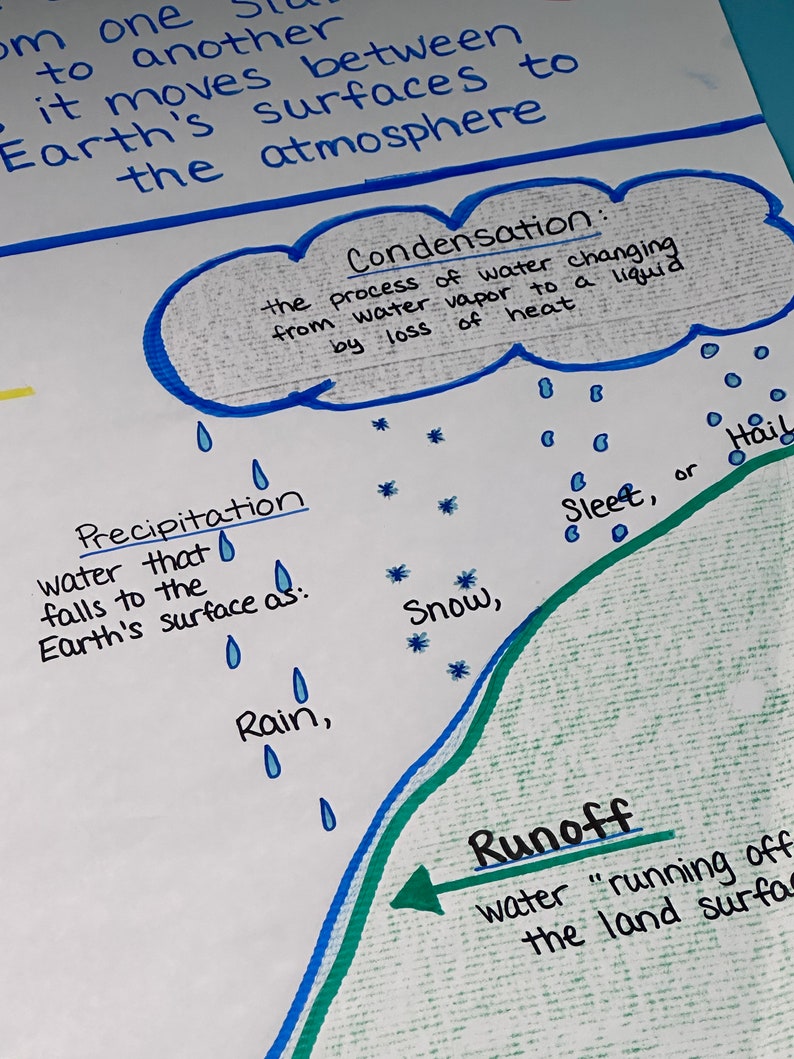 one
to another
it moves between
Earth's surfaces to
the atmosphere
Condensation:
the process of water changing
from water vapor to a liquid
by loss of heat
Precipitation
water that
falls to the
Earth's surface as:
Rain,
Snow,
Sleet, or
Hail
Runoff
water "running off
the land